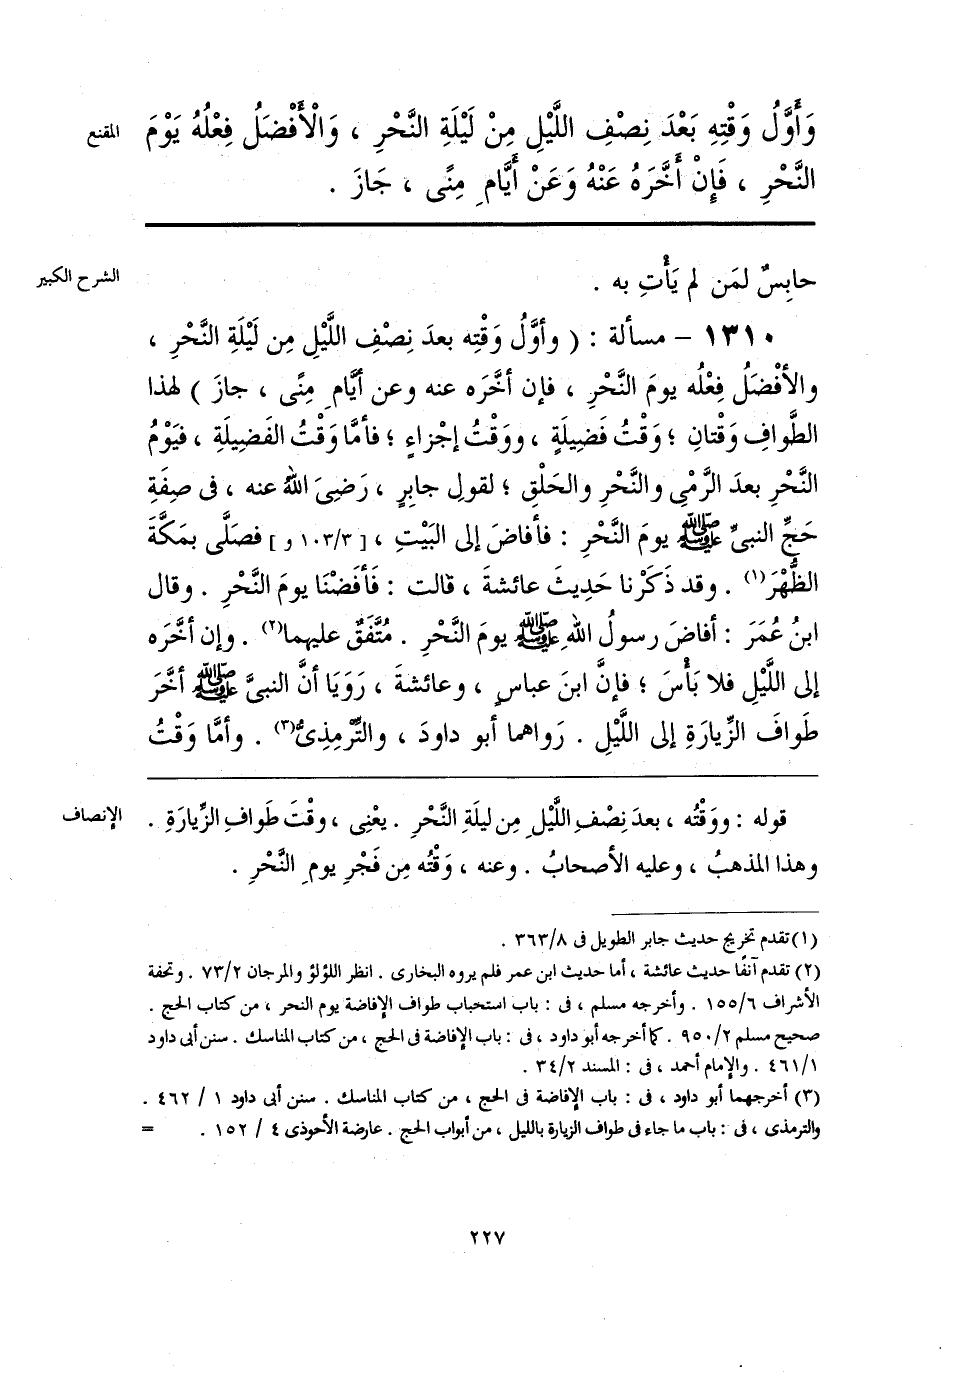 المقنع
وَأَوَّلُ وَقْتِهِ بَعْدَ نِصْفِ اللَّيْلِ مِنْ لَيْلَةِ النَّحْرِ ، وَالْأَفْضَلُ فِعْلُهُ يَوْمَ
النَّحْرِ ، فَإِنْ أَخَّرَهُ عَنْهُ وَعَنْ أَيَّامِ مِنًى ، جَازَ .
الشرح الكبير
حابِسٌ لمَن لم يَأْتِ به .
١٣١٠ – مسألة : ( وأوَّلُ وَقْتِه بعدَ نِصْفِ اللَّيْلِ مِن لَيْلَةِ النَّحْرِ ،
والأفْضَلُ فِعْلُه يومَ النَّحْرِ ، فإن أخَّرَه عنه وعن أيَّامِ مِنًى ، جازَ ) لهذا
الطَّوافِ وَقْتانِ ؛ وَقْتُ فَضِيلَةٍ ، ووَقْتُ إجْزاءٍ ؛ فأمَّا وَقْتُ الفَضِيلَةِ ، فيَوْمُ
النَّحْرِ بعدَ الرَّمْىِ والنَّحْرِ والحَلْقِ ؛ لقولِ جابِرٍ ، رَضِىَ اللهُ عنه ، فى صِفَةِ
حَجِّ النبىِّ ﷺ يومَ النَّحْرِ : فأفاضَ إلى البَيْتِ ، [ ١٠٣/٣ و ] فصَلَّى بمَكَّةَ
الظُّهْرَ(١) . وقد ذَكَرْنا حَدِيثَ عائشةَ ، قالت : فَأفَضْنَا يومَ النَّحْرِ . وقال
ابنُ عُمَرَ : أفاضَ رسولُ اللهِ ﷺ يومَ النَّحْرِ . مُتَّفَقٌ عليهما(٢) . وإن أخَّرَه
إلى اللَّيْلِ فلا بَأْسَ ؛ فإنَّ ابنَ عباسٍ ، وعائشةَ ، رَوَيَا أنَّ النبىَّ ﷺ أخَّرَ
طَوافَ الزِّيارَةِ إلى اللَّيْلِ . رَواهما أبو داودَ ، والتِّرْمِذِىُّ(٣) . وأمَّا وَقْتُ
الإنصاف
قوله : ووَقْتُه ، بعدَ نِصْفِ اللَّيْلِ مِن ليلَةِ النَّحْرِ . يعْنِى ، وقْتَ طَوافِ الزِّيارَةِ .
وهذا المذهبُ ، وعليه الأصحابُ . وعنه ، وَقْتُه مِن فَجْرِ يومِ النَّحْرِ .
(١) تقدم تخريج حديث جابر الطويل فى ٣٦٣/٨ .
(٢) تقدم آنفًا حديث عائشة ، أما حديث ابن عمر فلم يروه البخارى . انظر اللؤلؤ والمرجان ٧٣/٢ . وتحفة
الأشراف ١٥٥/٦ . وأخرجه مسلم ، فى : باب استحباب طواف الإفاضة يوم النحر ، من كتاب الحج .
صحيح مسلم ٩٥٠/٢ . كما أخرجه أبو داود ، فى : باب الإفاضة فى الحج ، من كتاب المناسك . سنن أبى داود
٤٦١/١ . والإمام أحمد ، فى : المسند ٣٤/٢ .
(٣) أخرجهما أبو داود ، فى : باب الإفاضة فى الحج ، من كتاب المناسك . سنن أبى داود ١ / ٤٦٢ .
والترمذى ، فى : باب ما جاء فى طواف الزيارة بالليل ، من أبواب الحج . عارضة الأحوذى ٤ / ١٥٢ . =
٢٢٧